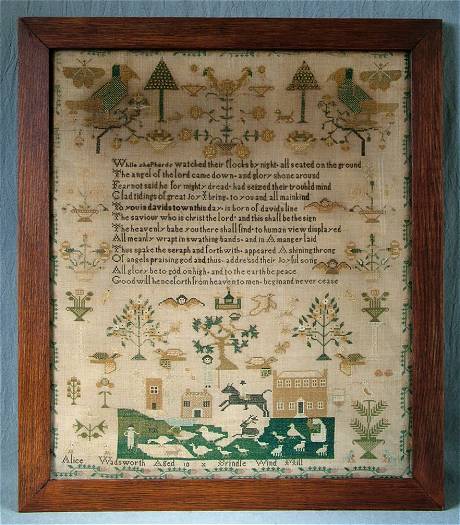 While shepherds watched their flocks by night - all seated on the ground
The angel of the lord came down - and glory shone around
Fear not said he for mighty dread - had seized their troubld mind
Glad tidings of great Joy I bring - to you and all mankind
To you in davids town this day is born of davids line
The saviour who is christ the lord and this shall be the sign
The heavenly babe you there shall find - to human view displayed
All meanly wrapt in swathing bands - and in A manger laid
Thus spake the seraph and forth with - appeared A shining throng
Of angels praising god and thus - addressd their Joyful song
All glory be to god on high - and to the earth be peace
Good will henceforth from heaven to men - begin and never cease
Alice Wadsworth Aged 10 x Brindle Wind Mill